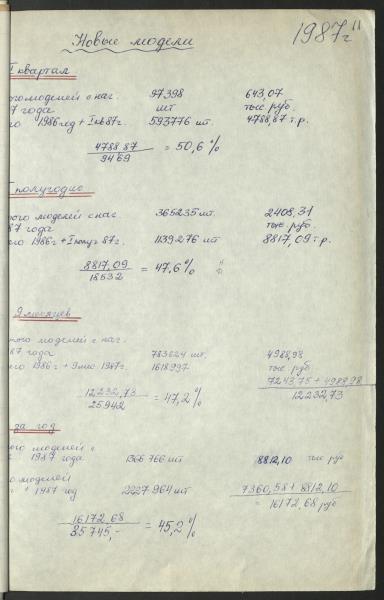 Новые модели
1987г
11
I квартал
ого моделей с наг. 97398 643,07
7 года шт тыс руб.
го 1986год + I кв 87г. 593776 шт. 4788,87 т.р.
4788,87 / 9469 = 50,6 %
I полугодие
ого моделей с наг 365235 шт. 2408,31
87 года тыс руб.
его 1986г + I полуг 87г. 1139276 шт 8817,09 т.р.
8817,09 / 18532 = 47,6 %
9 месяцев
ного моделей с наг.
87 года 783624 шт. 4988,98
тыс руб
его 1986г + 9 мес. 1987г. 1618997 7243,75 + 4988,98
12232,73
12232,73 / 25942 = 47,2 %
за год
ого моделей с
1987 года 1366766 шт 8812,10 тыс руб
го моделей
г + 1987 год 2227964 шт 7360,58 + 8812,10
= 16172,68 руб
16172,68 / 35745,- = 45,2 %